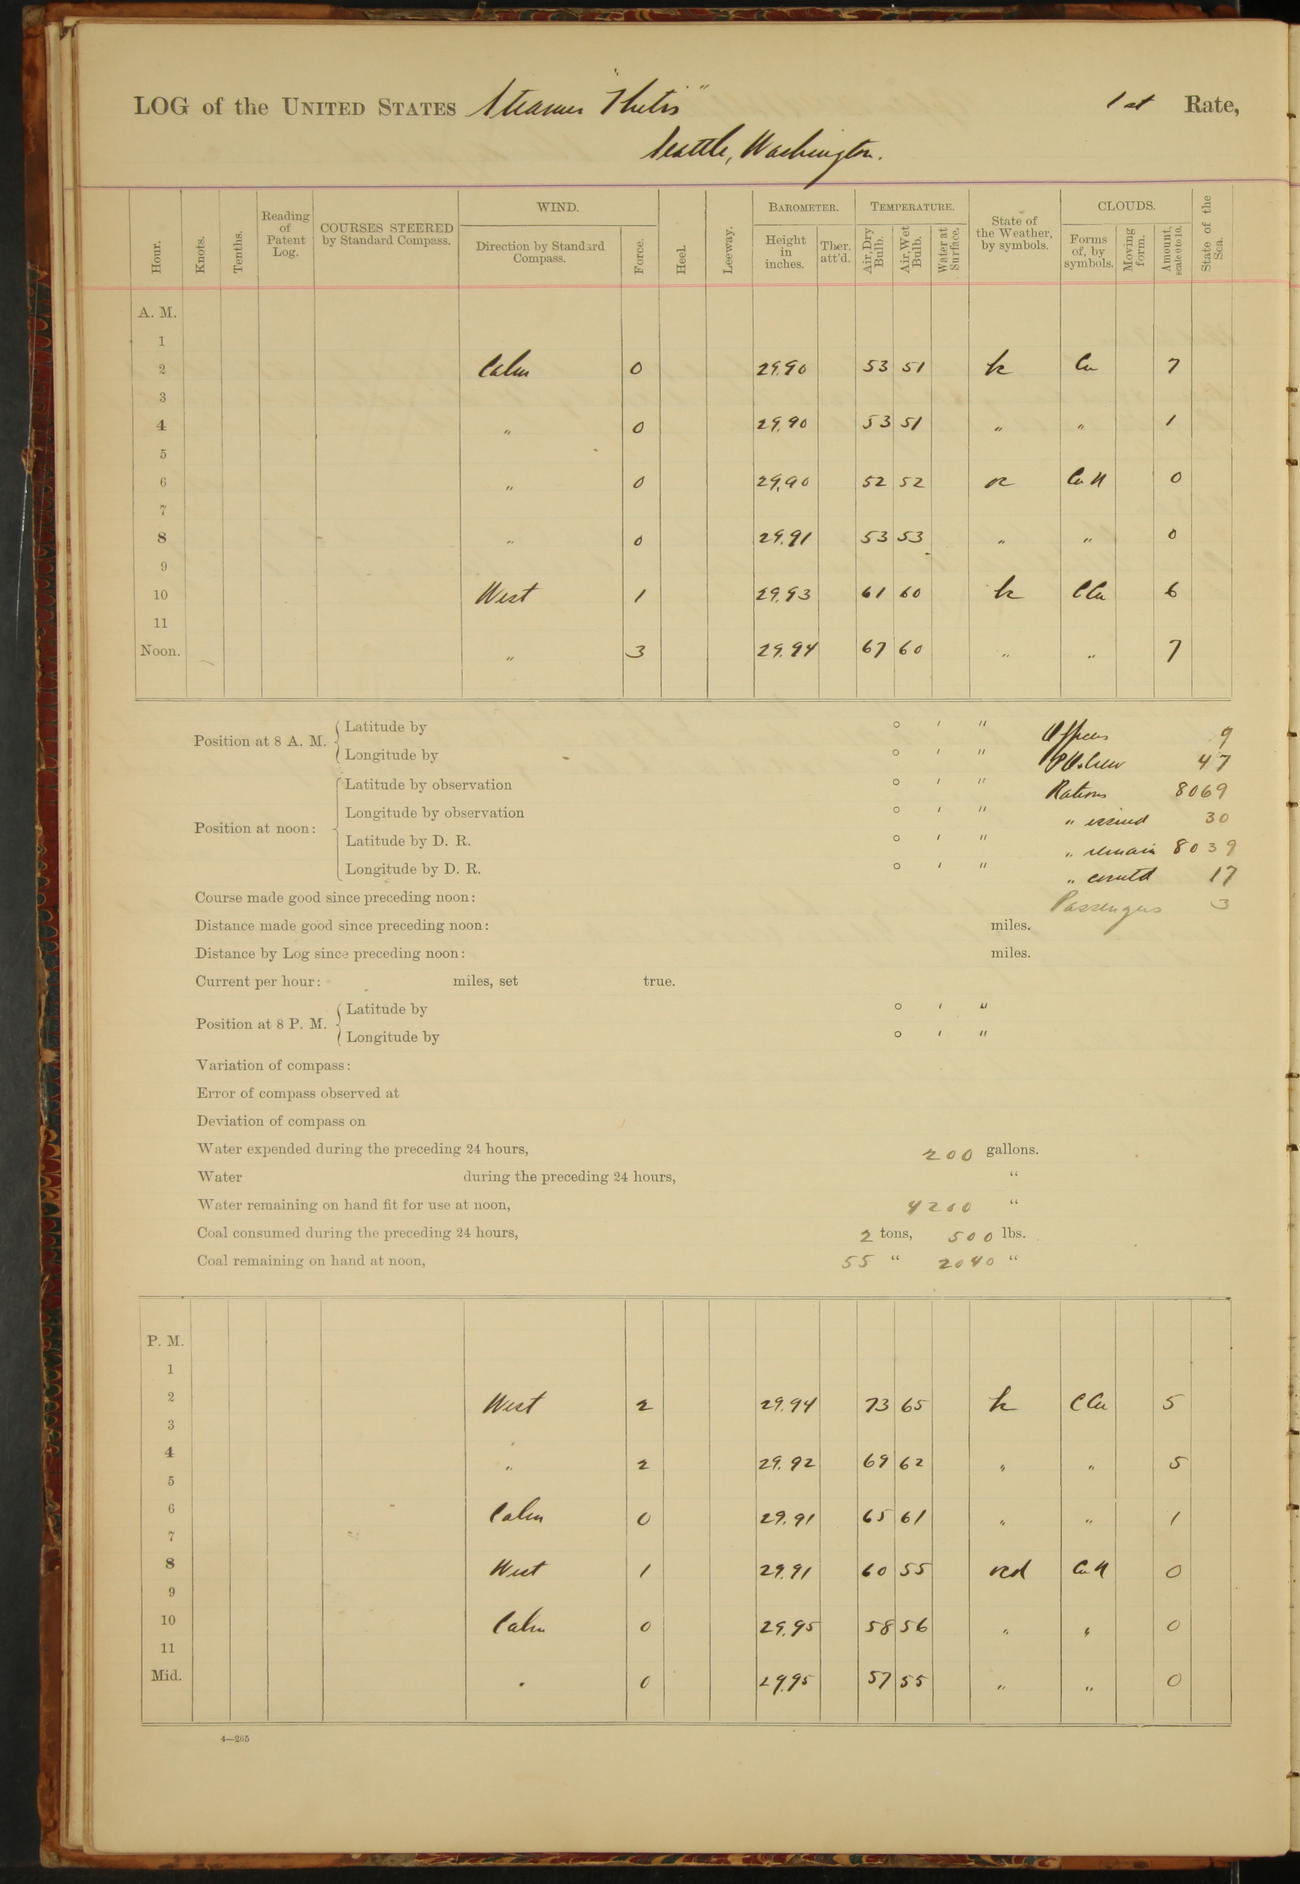 LOG of the UNITED STATES Steamer "Thetis" 1st Rate,
Seattle, Washington.
Hour. Knots. Tenths. Reading of Patent Log. COURSES STEERED by Standard Compass. WIND. Direction by Standard Compass. Force. Heel. Leeway. BAROMETER. Height in inches. Ther. att'd. TEMPERATURE. Air, Dry Bulb. Air, Wet Bulb. Water at Surface. State of the Weather, by symbols. CLOUDS. Forms of, by symbols. Moving form. Amount, scale 0 to 10. State of the Sea.
A. M.
1
2 Calm 0 29.90 53 51 bc Cu 7
3
4 " 0 29.90 53 51 " " 1
5
6 " 0 29.90 52 52 oc Cu N 0
7
8 " 0 29.91 53 53 " " 0
9
10 West 1 29.93 61 60 bc C Cu 6
11
Noon. " 3 29.94 67 60 " " 7
Position at 8 A. M. Latitude by ° ′ ″ Officers 9
Longitude by ° ′ ″ P.O. & Crew 47
Position at noon: Latitude by observation ° ′ ″ Rations 8069
Longitude by observation ° ′ ″ " issued 30
Latitude by D. R. ° ′ ″ " remain 8039
Longitude by D. R. ° ′ ″ " comuted 17
Course made good since preceding noon: Passengers 3
Distance made good since preceding noon: miles.
Distance by Log since preceding noon: miles.
Current per hour: miles, set true.
Position at 8 P. M. Latitude by ° ′ ″
Longitude by ° ′ ″
Variation of compass:
Error of compass observed at
Deviation of compass on
Water expended during the preceding 24 hours, 200 gallons.
Water during the preceding 24 hours, "
Water remaining on hand fit for use at noon, 4200 "
Coal consumed during the preceding 24 hours, 2 tons, 500 lbs.
Coal remaining on hand at noon, 55 " 2040 "
P. M.
1
2 West 2 29.94 73 65 bc C Cu 5
3
4 " 2 29.92 69 62 " " 5
5
6 Calm 0 29.91 65 61 " " 1
7
8 West 1 29.91 60 55 ocd Cu N 0
9
10 Calm 0 29.95 58 56 " " 0
11
Mid. " 0 29.95 57 55 " " 0
4—265